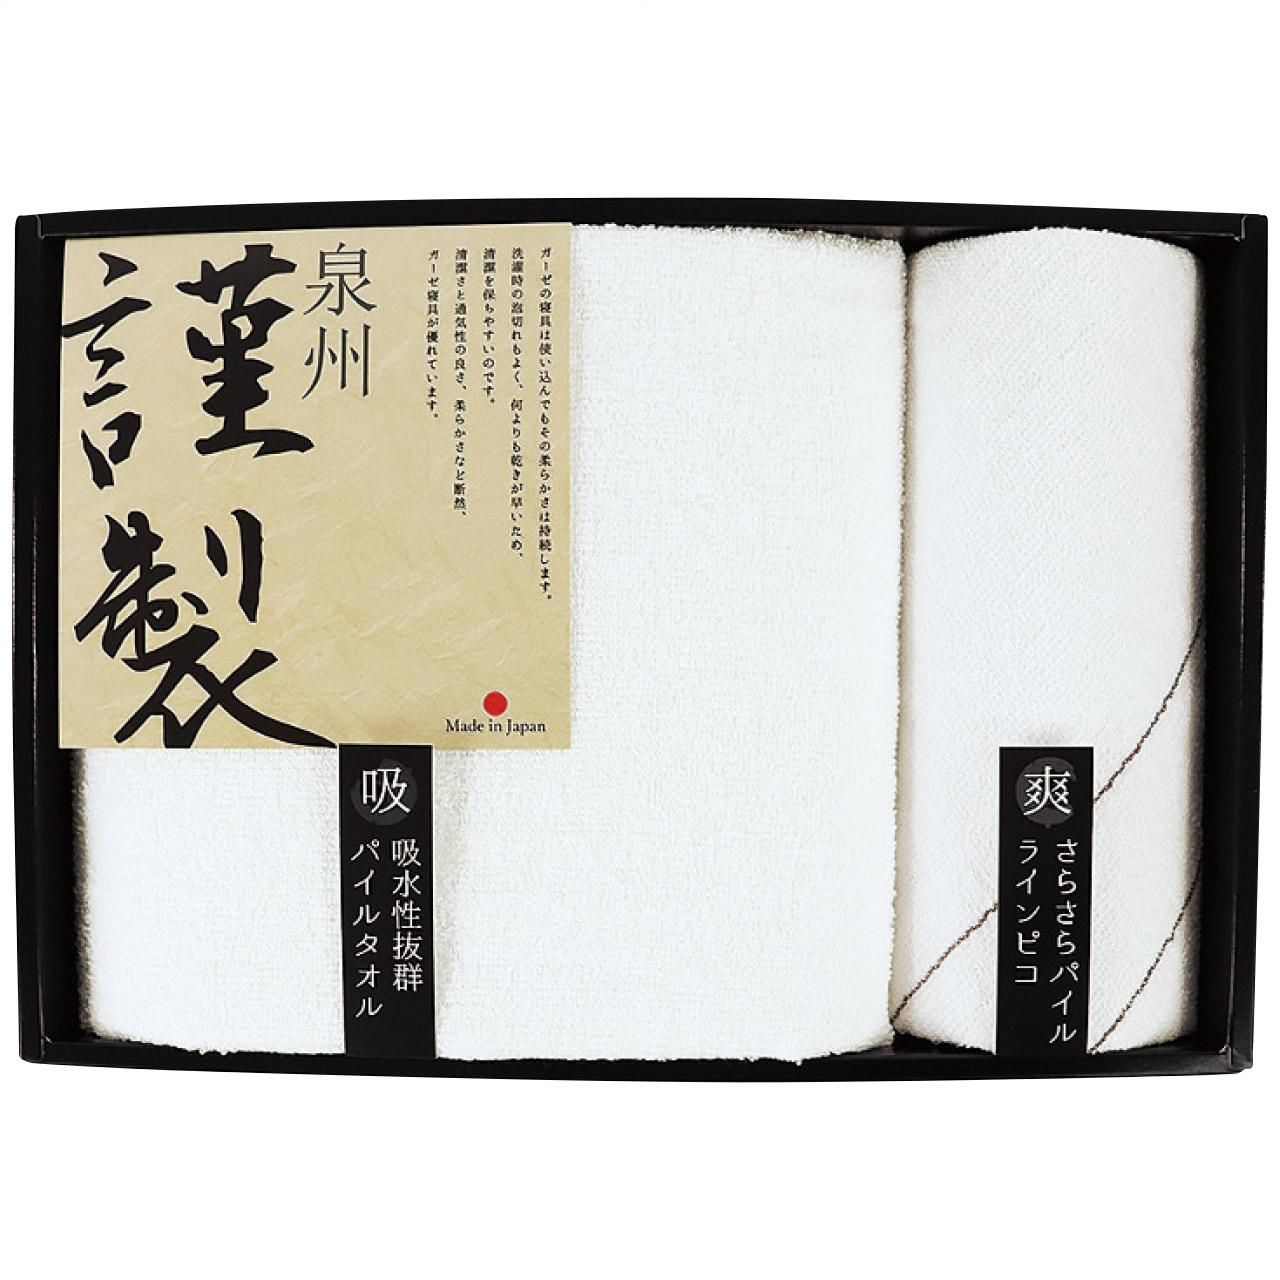 泉州
謹製
ガーゼの寝具は使い込んでもその柔らかさは持続します。
洗濯時の泡切れもよく、何よりも乾きが早いため、
清潔を保ちやすいのです。
清潔さと通気性の良さ、柔らかさなど断然、
ガーゼ寝具が優れています。
Made in Japan
吸
吸水性抜群
パイルタオル
爽
さらさらパイル
ラインピコ